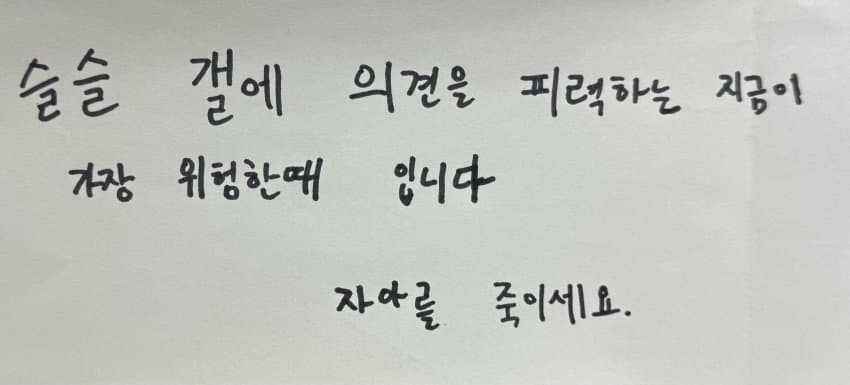 슬슬 갤에 의견을 피력하는 지금이
가장 위험한때 입니다
자아를 죽이세요.